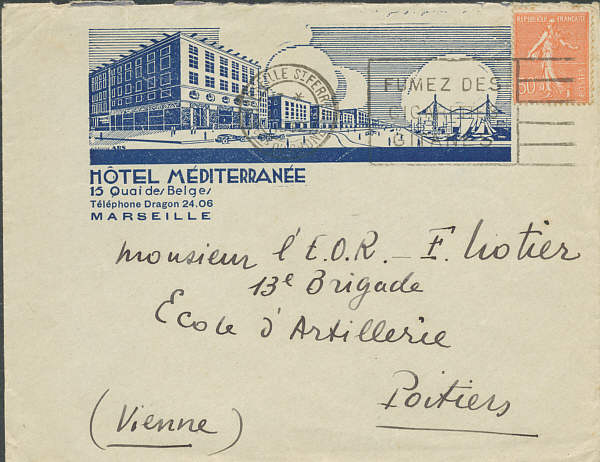 REPUBLIQUE FRANÇAISE
50
POSTES
FUMEZ DES
HÔTEL MÉDITERRANÉE
15 Quai des Belges
Téléphone Dragon 24.06
MARSEILLE
monsieur l'E.O.R. _ F.
13e Brigade
Ecole d'Artillerie
Poitiers
(Vienne)